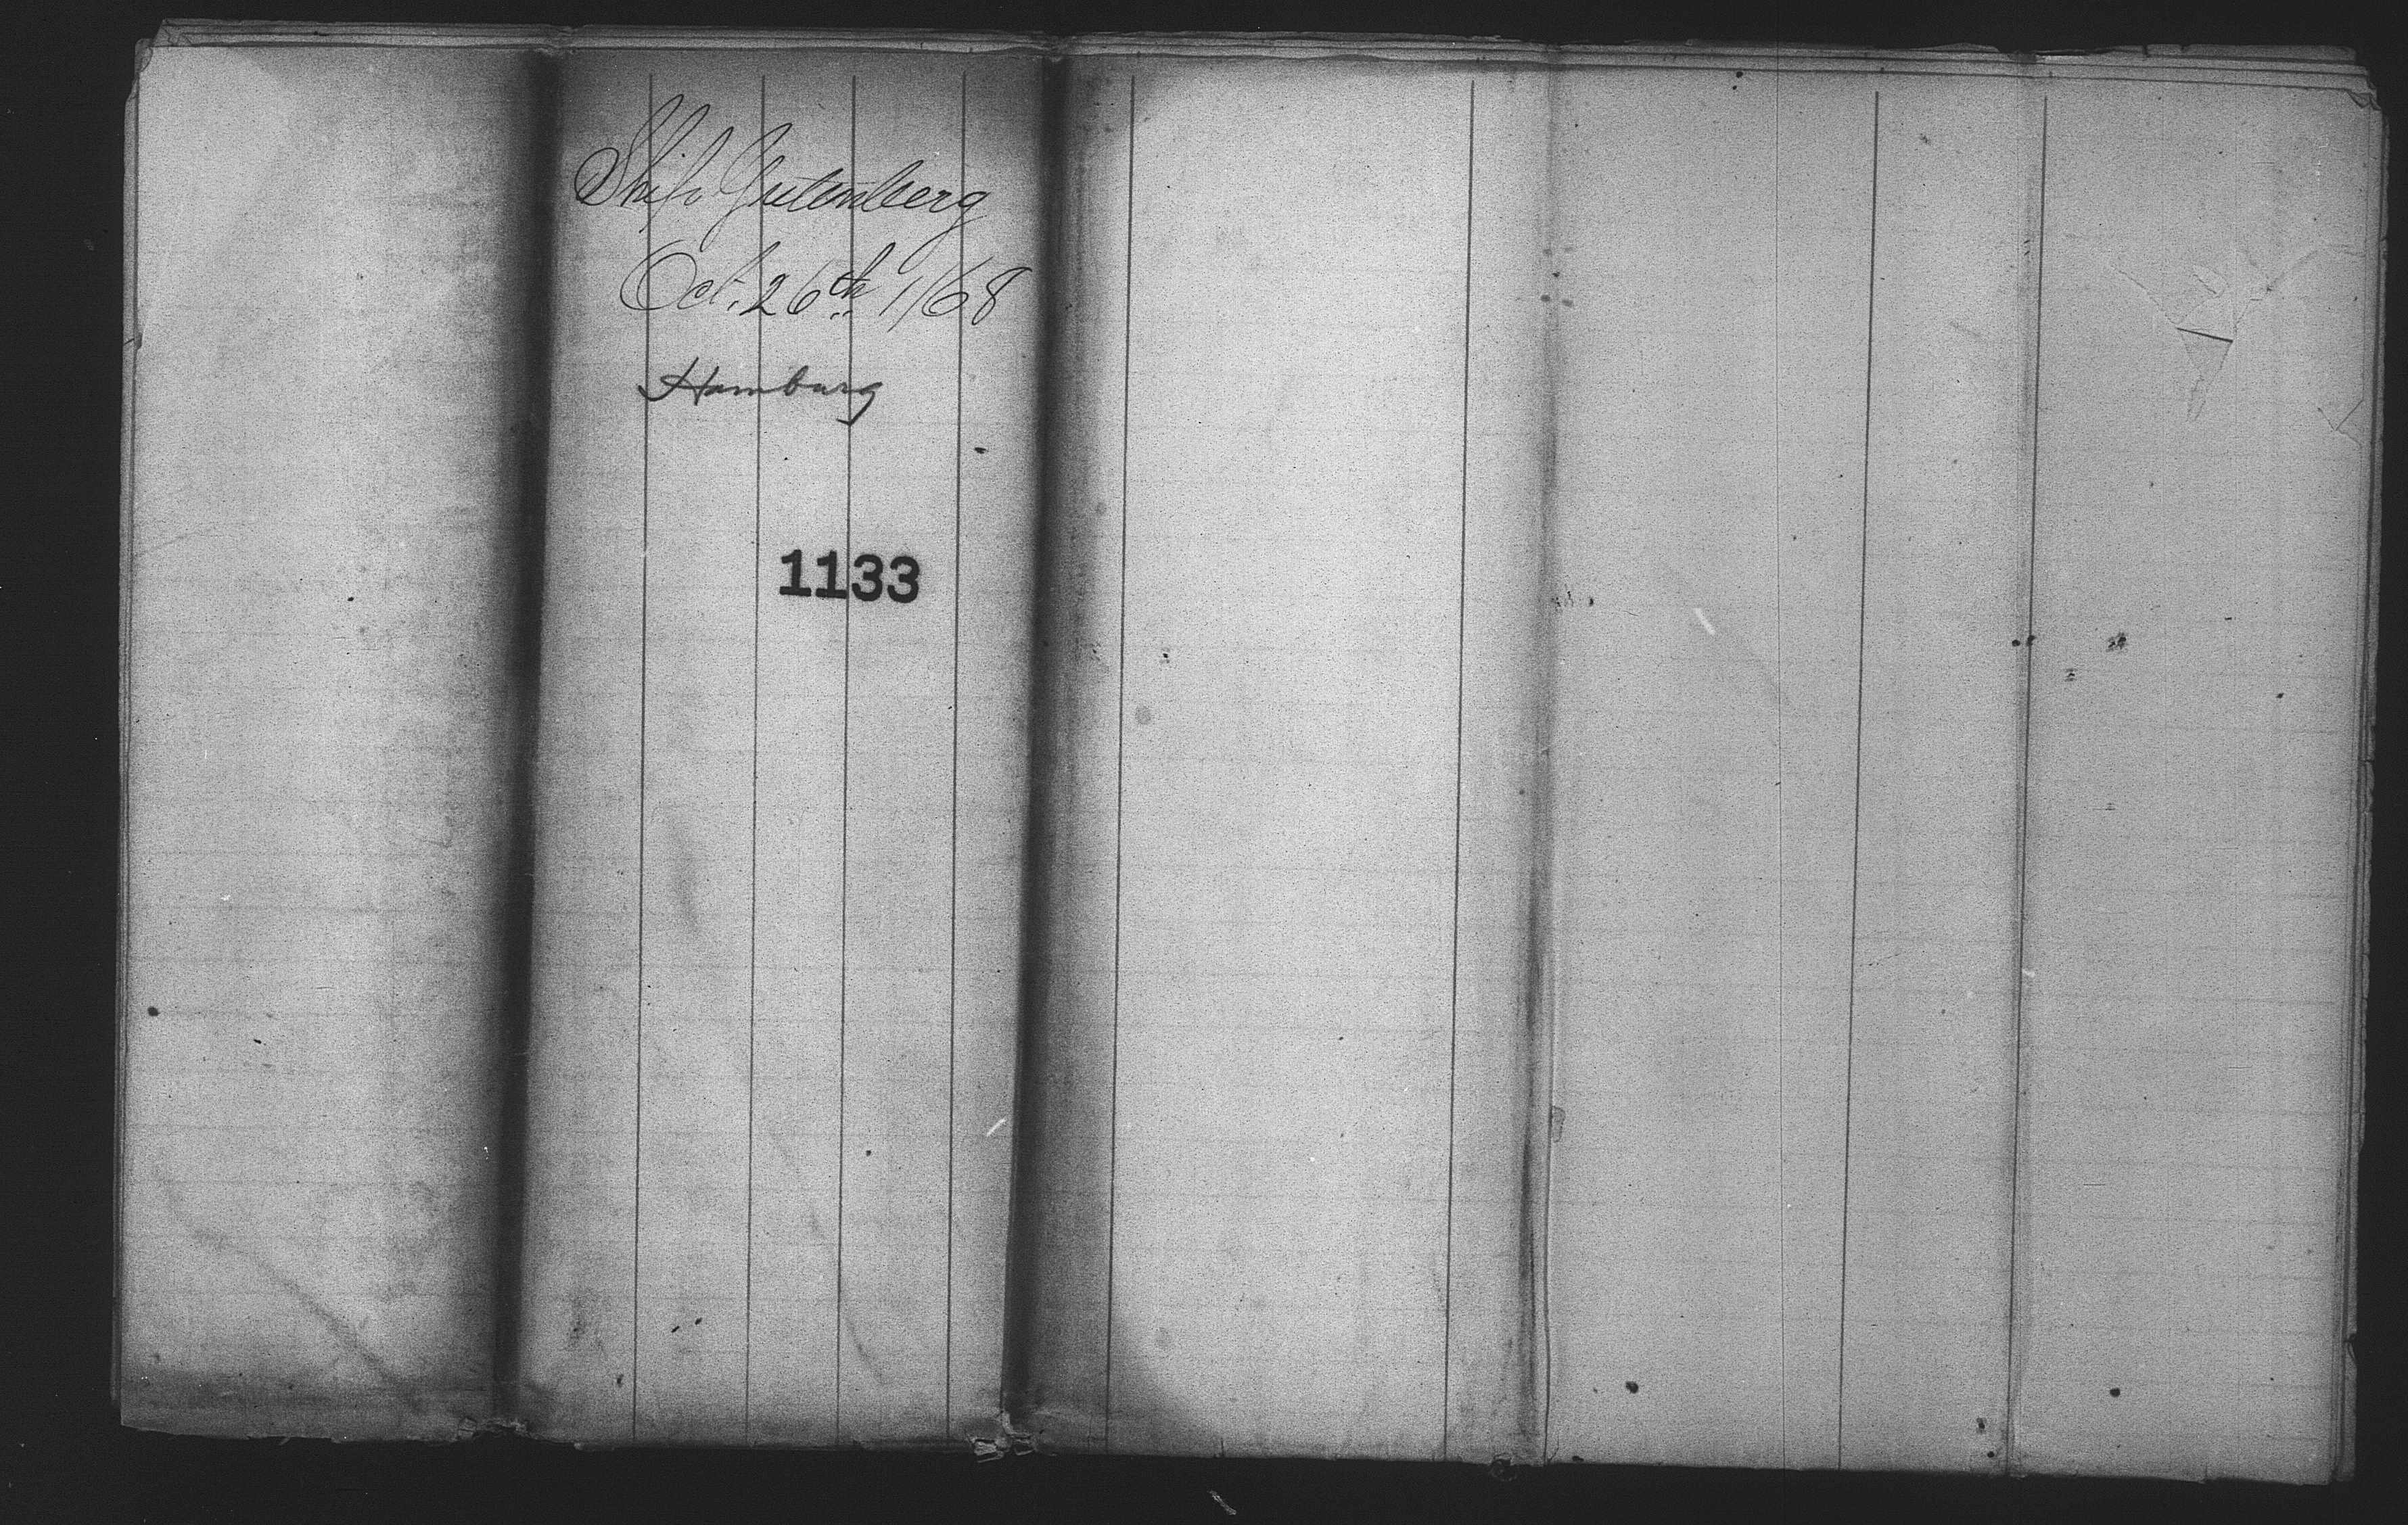 Ship Gutenberg
Oct. 26th 1/68
Hamburg
1133